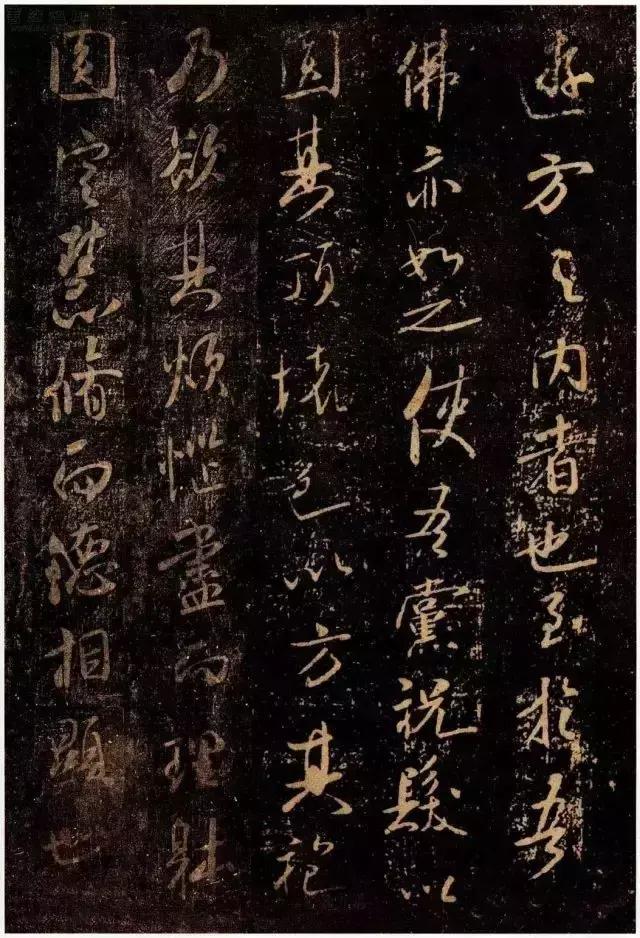 遊方之内者也至於吾
佛亦如之使吾黨祝髮以
圓其頂壞色以方其袍
乃欲其煩惱盡而理躰
圓定慧脩而德相顯也